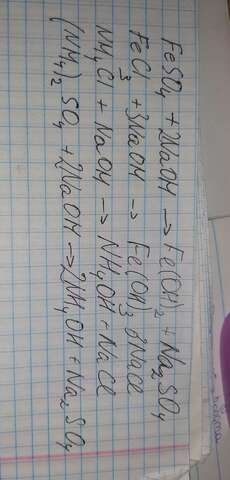 FeSO4 + 2NaOH → Fe(OH)2 + Na2SO4
FeCl3 + 3NaOH → Fe(OH)3 3NaCl
NH4Cl + NaOH → NH4OH + NaCl
(NH4)2 SO4 + 2NaOH → 2NH4OH + Na2SO4